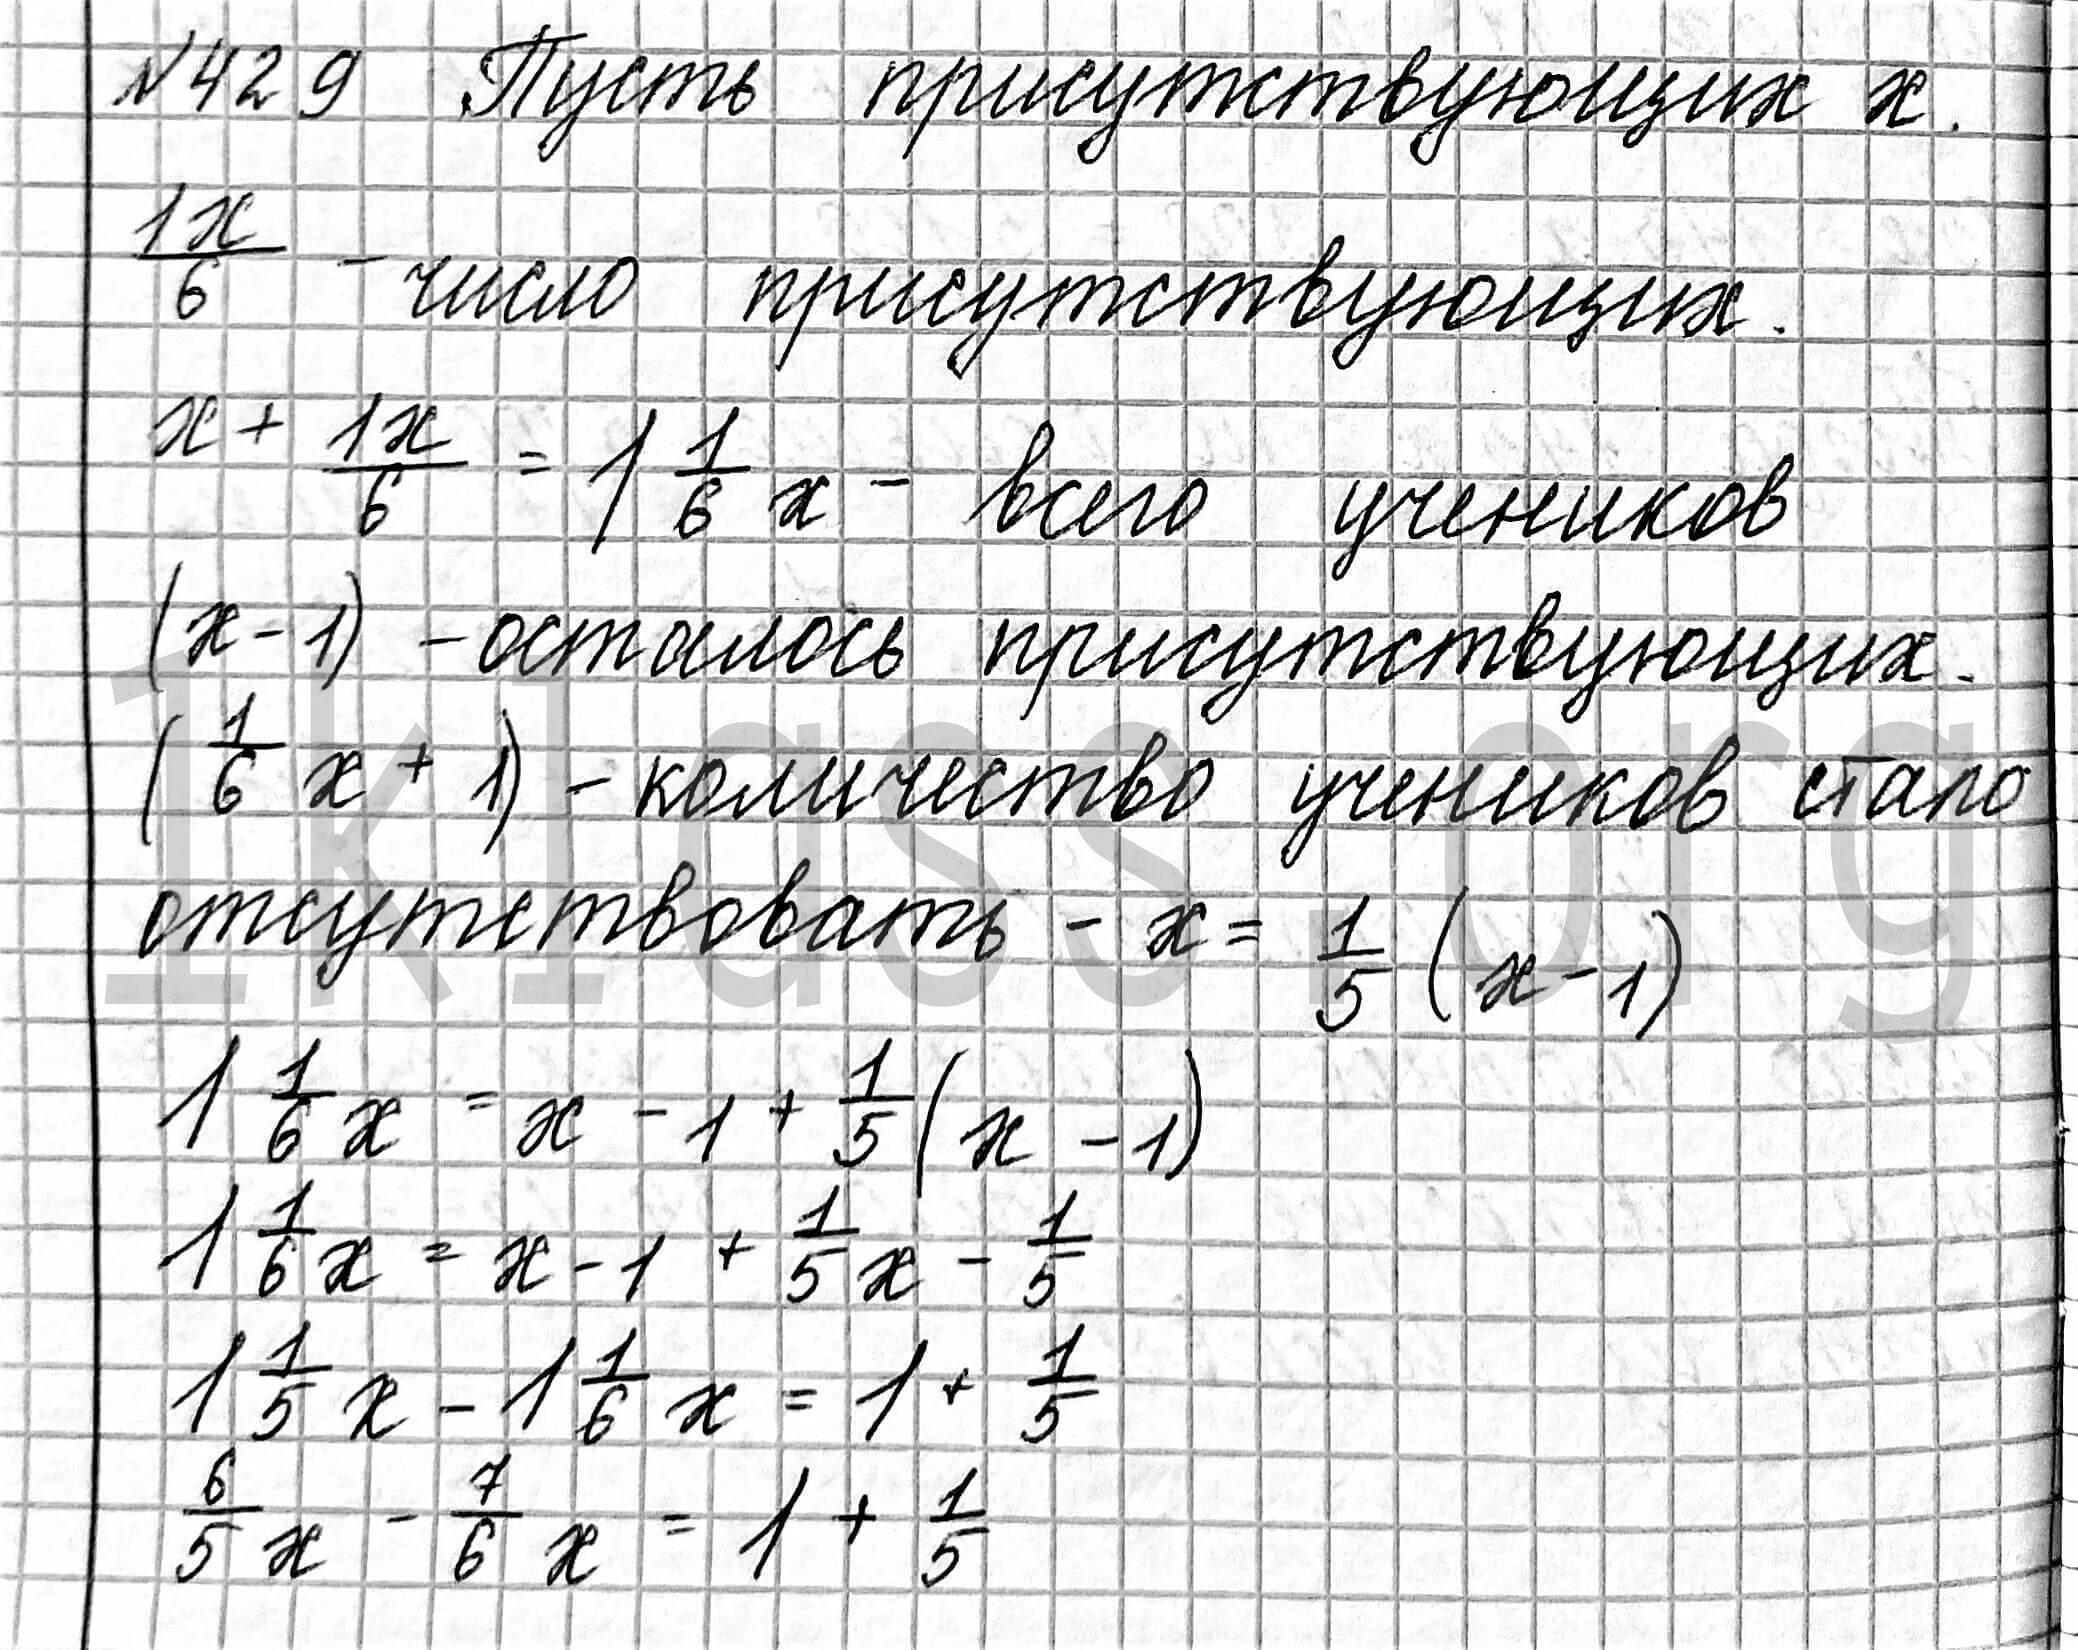 №429 Пусть присутствующих x.
1x/6 - число присутствующих.
x + 1x/6 = 1 1/6 x - всего учеников
(x - 1) - осталось присутствующих.
(1/6 x + 1) - количество учеников стало
отсутствовать - x = 1/5 (x - 1)
1 1/6 x = x - 1 + 1/5 (x - 1)
1 1/6 x = x - 1 + 1/5 x - 1/5
1 1/5 x - 1 1/6 x = 1 + 1/5
6/5 x - 7/6 x = 1 + 1/5
1klass.org